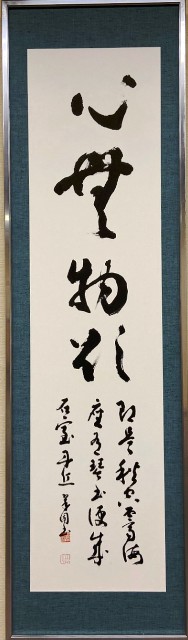 心無物欲
即是秋空霽海
座有琴書便成
石室丹丘